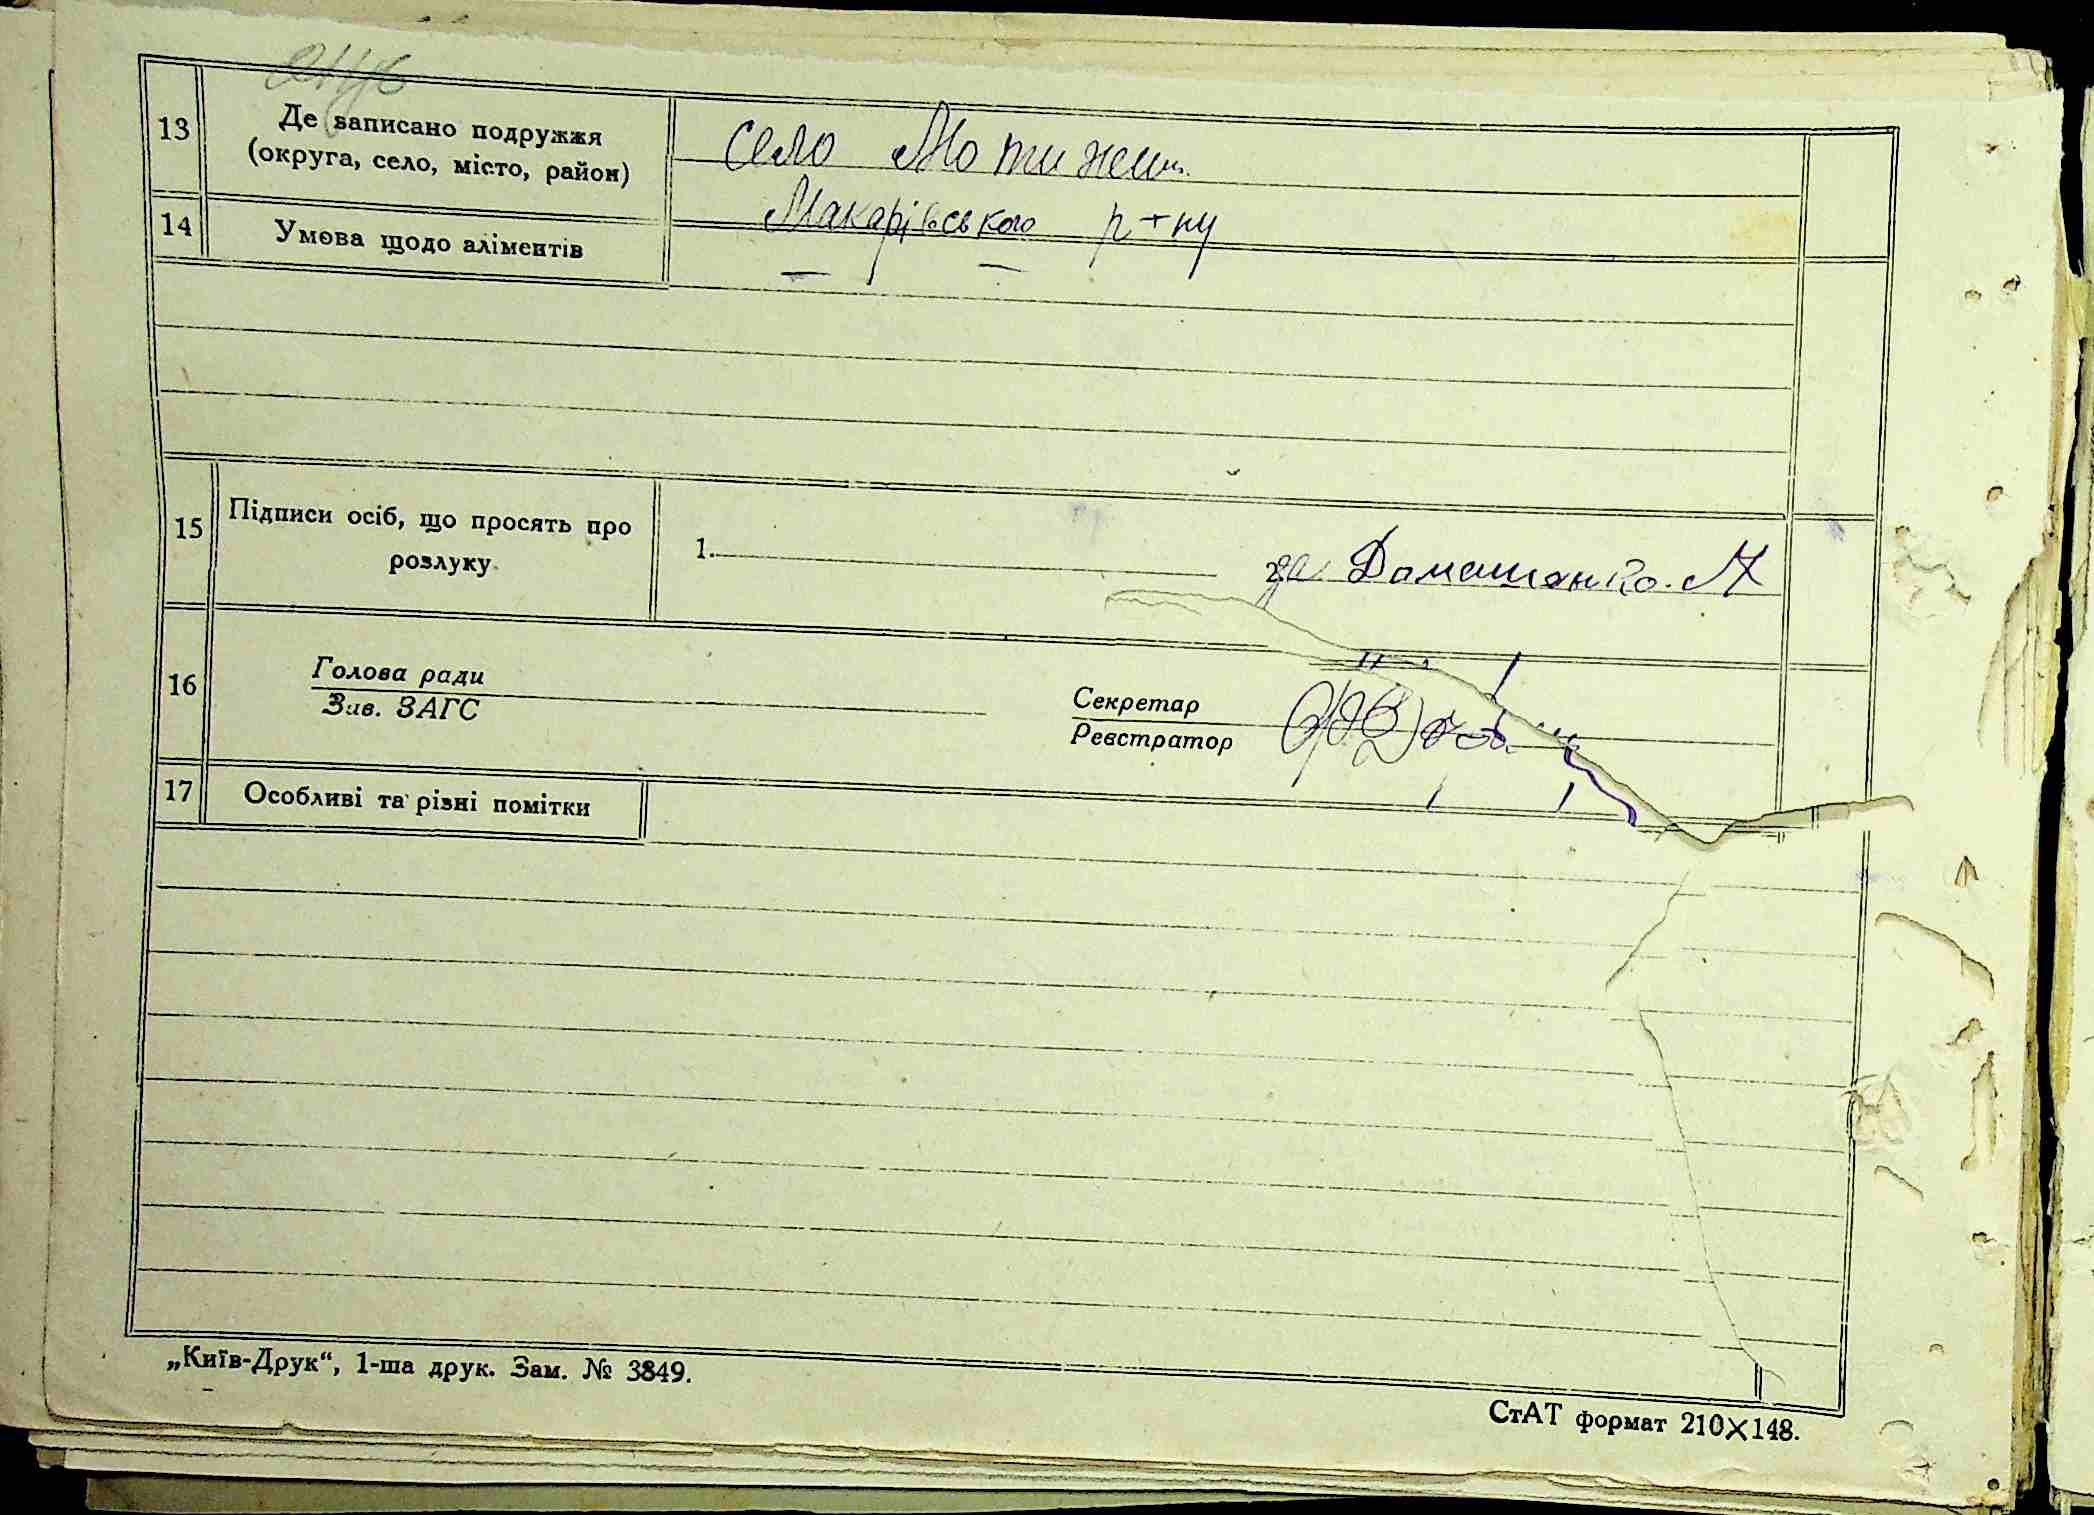 13
Де записано подружжя
(округа, село, місто, район)
село Мотижин
Макарівського р-ну
14
Умова щодо аліментів
— —
15
Підписи осіб, що просять про
розлуку
1.
за Домашенко. М
16
Голова ради
Зав. ЗАГС
Секретар
Реєстратор
17
Особливі та різні помітки
„Київ-Друк“, 1-ша друк. Зам. № 3849.
СтАТ формат 210×148.